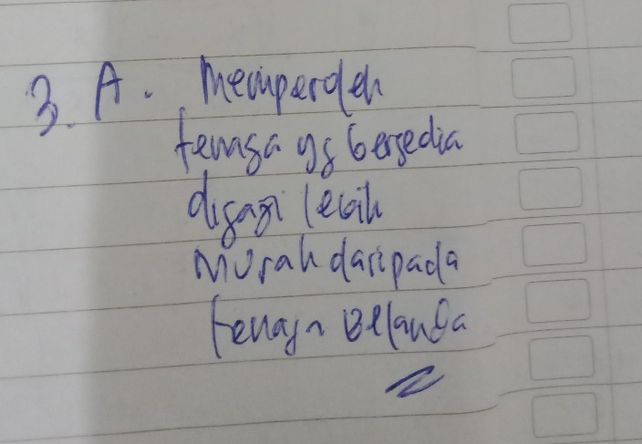 3. A. Memperoleh
tenaga yg bersedia
digaji lebih
murah daripada
tenaga Belanda